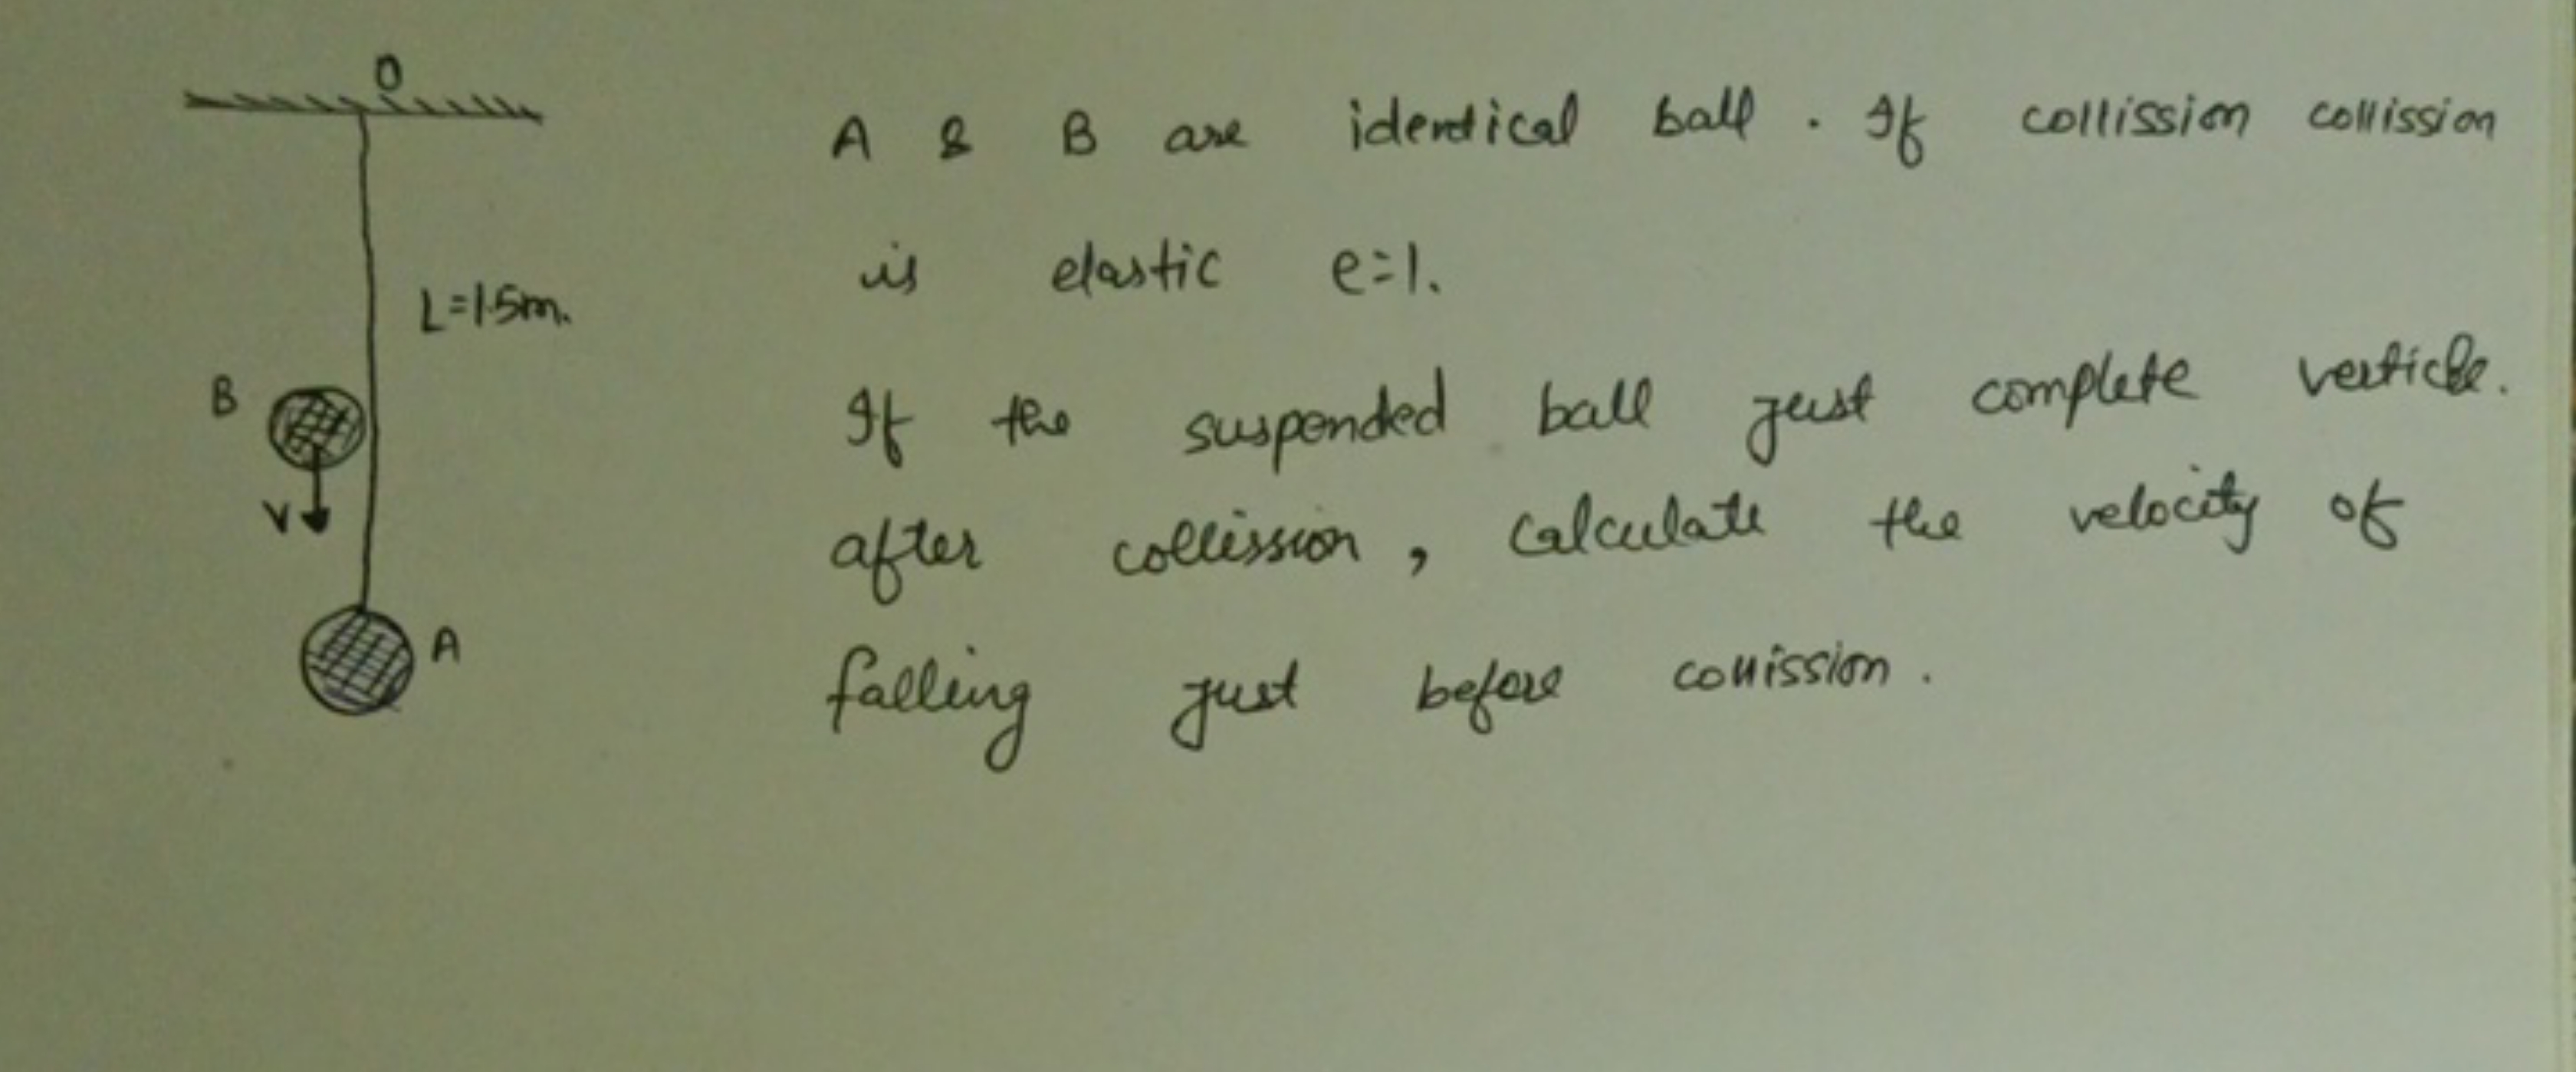 O
A & B are identical ball. If collission collission
is elastic e=1.
L=1.5m.
B
If the suspended ball just complete verticle.
V
after collission, calculate the velocity of
A
falling just before collission.